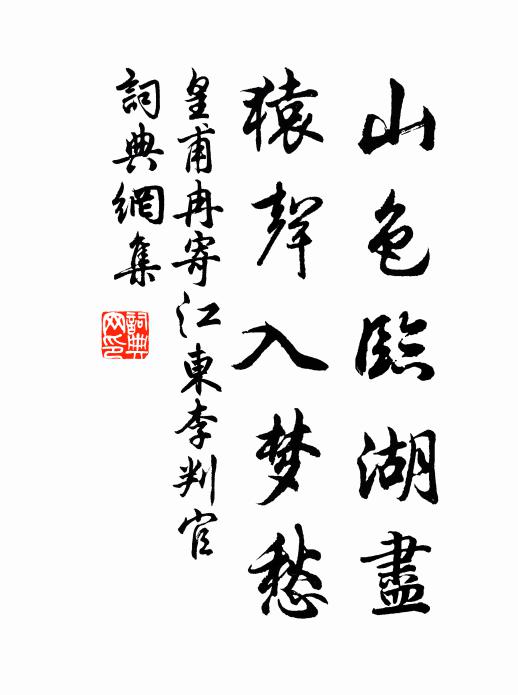 山色臨湖盡
猿聲入梦愁
皇甫冉寄江東李判官
詞典網集
詞典网印